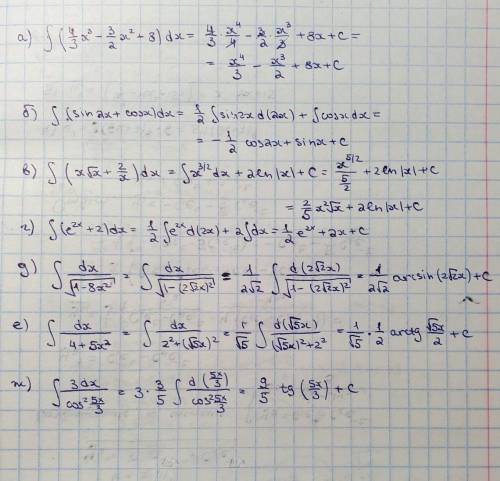 а) ∫ (4/3 x³ − 3/2 x² + 8) dx = 4/3 · x⁴/4 − 3/2 · x³/3 + 8x + C =
= x⁴/3 − x³/2 + 8x + C
б) ∫ (sin 2x + cosx) dx = 1/2 ∫ sin2x d(2x) + ∫ cosx dx =
= − 1/2 cos2x + sinx + C
в) ∫ (x√x + 2/x) dx = ∫ x^(3/2) dx + 2ln|x| + C = x^(5/2)/(5/2) + 2ln|x| + C
= 2/5 x²√x + 2ln|x| + C
г) ∫ (e^(2x) + 2) dx = 1/2 ∫ e^(2x) d(2x) + 2∫dx = 1/2 e^(2x) + 2x + C
д) ∫ dx/√(1−8x²) = ∫ dx/√(1−(2√2x)²) = 1/(2√2) ∫ d(2√2x)/√(1−(2√2x)²) = 1/(2√2) arcsin(2√2x) + C
е) ∫ dx/(4+5x²) = ∫ dx/(2²+(√5x)²) = 1/√5 ∫ d(√5x)/((√5x)²+2²) = 1/√5 · 1/2 arctg √5x/2 + C
ж) ∫ 3dx/cos² 5x/3 = 3 · 3/5 ∫ d(5x/3)/cos² 5x/3 = 9/5 tg(5x/3) + C